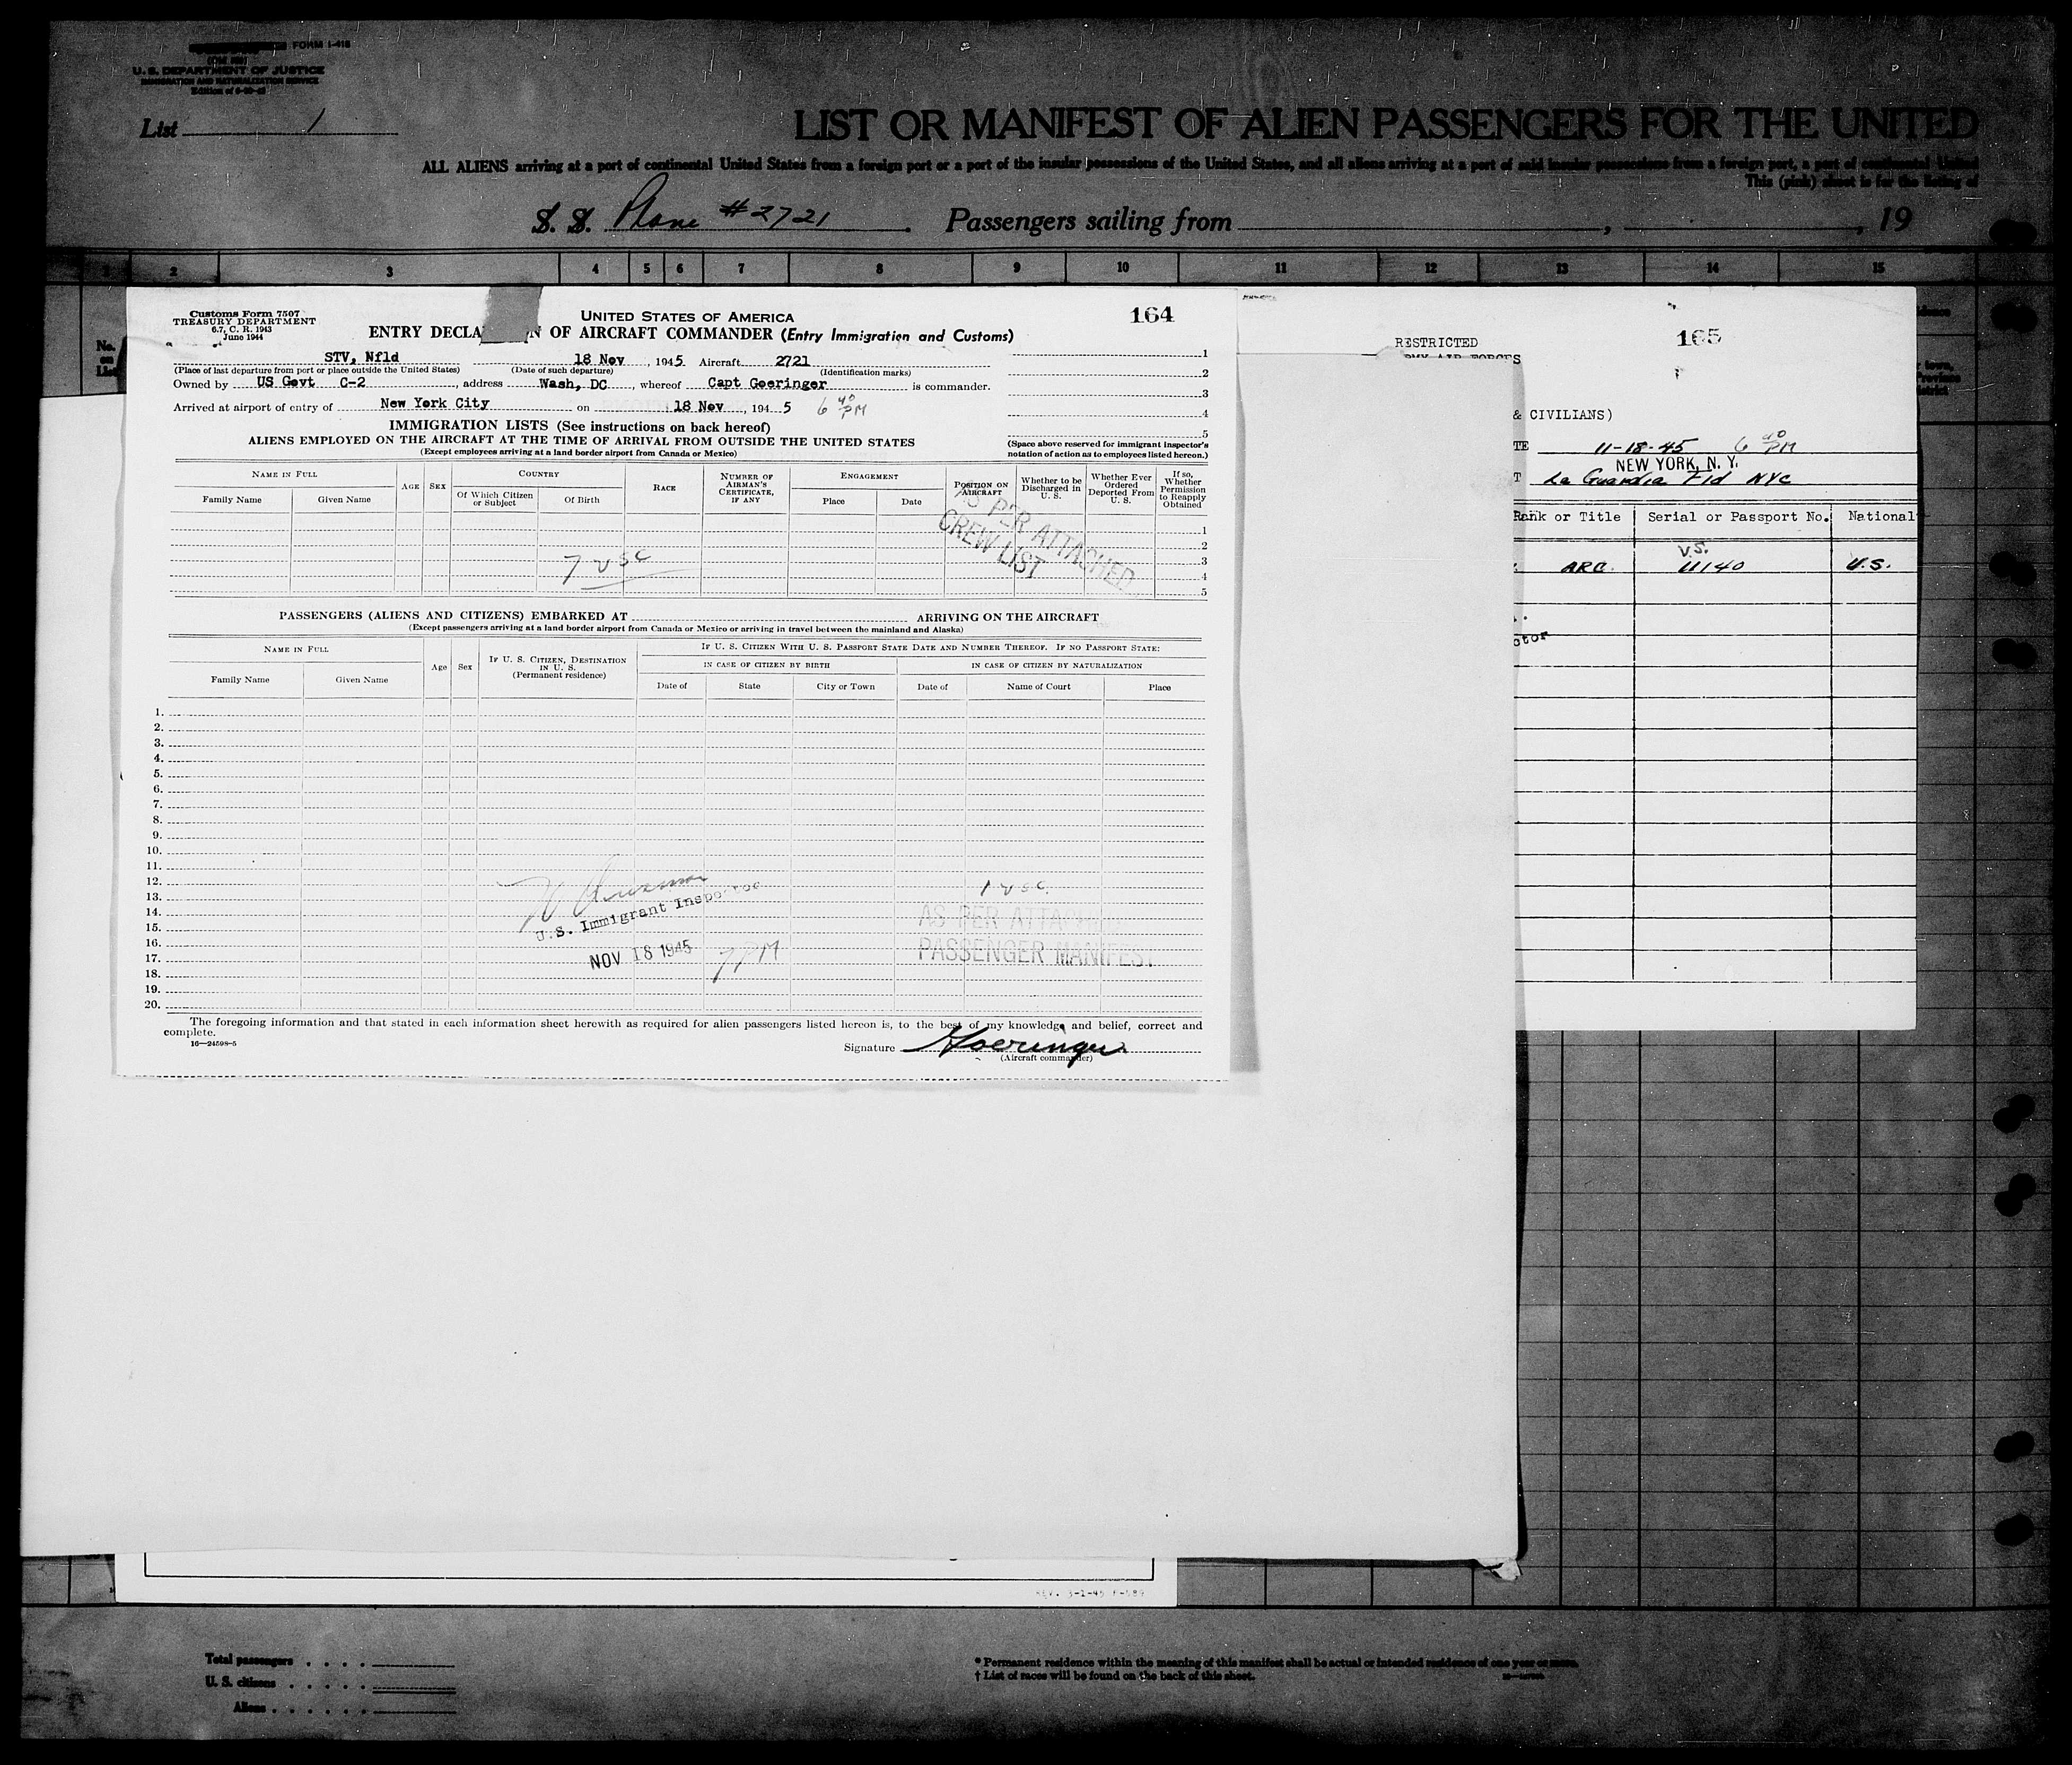 FORM I-418
U. S. DEPARTMENT OF JUSTICE
IMMIGRATION AND NATURALIZATION SERVICE
List 1
LIST OR MANIFEST OF ALIEN PASSENGERS FOR THE UNITED
ALL ALIENS arriving at a port of continental United States from a foreign port or a port of the insular possessions of the United States, and all aliens arriving at a port of said insular possessions from a foreign port, a port of continental United
This (pink) sheet is for the listing of
S. S. Plane #2721 Passengers sailing from , , 19
1 2 3 4 5 6 7 8 9 10 11 12 13 14 15
No. on List
Customs Form 7507
TREASURY DEPARTMENT
6.7, C. R. 1943
June 1944
UNITED STATES OF AMERICA
164
ENTRY DECLA N OF AIRCRAFT COMMANDER (Entry Immigration and Customs)
STV, Nfld 18 Nov, 1945 Aircraft 2721
(Place of last departure from port or place outside the United States) (Date of such departure) (Identification marks)
Owned by US Govt C-2, address Wash, DC, whereof Capt Goeringer is commander.
Arrived at airport of entry of New York City on 18 Nov, 1945 6 40 PM
1
2
3
4
5
IMMIGRATION LISTS (See instructions on back hereof)
ALIENS EMPLOYED ON THE AIRCRAFT AT THE TIME OF ARRIVAL FROM OUTSIDE THE UNITED STATES
(Except employees arriving at a land border airport from Canada or Mexico)
(Space above reserved for immigrant inspector's notation of action as to employees listed hereon.)
NAME IN FULL
Family Name Given Name
AGE SEX
COUNTRY
Of Which Citizen or Subject Of Birth
RACE
NUMBER OF AIRMAN'S CERTIFICATE, IF ANY
ENGAGEMENT
Place Date
POSITION ON AIRCRAFT
Whether to be Discharged in U. S.
Whether Ever Ordered Deported From U. S.
If so, Whether Permission to Reapply Obtained
1
2
3
4
5
7 USC
AS PER ATTACHED
CREW LIST
PASSENGERS (ALIENS AND CITIZENS) EMBARKED AT ARRIVING ON THE AIRCRAFT
(Except passengers arriving at a land border airport from Canada or Mexico or arriving in travel between the mainland and Alaska)
NAME IN FULL
Family Name Given Name
Age Sex
IF U. S. CITIZEN, DESTINATION IN U. S. (Permanent residence)
IF U. S. CITIZEN WITH U. S. PASSPORT STATE DATE AND NUMBER THEREOF. IF NO PASSPORT STATE:
IN CASE OF CITIZEN BY BIRTH IN CASE OF CITIZEN BY NATURALIZATION
Date of State City or Town Date of Name of Court Place
1.
2.
3.
4.
5.
6.
7.
8.
9.
10.
11.
12.
13.
14.
15.
16.
17.
18.
19.
20.
U.S. Immigrant Inspector
NOV 18 1945 7 PM
1 USC
AS PER ATTACHED
PASSENGER MANIFEST
The foregoing information and that stated in each information sheet herewith as required for alien passengers listed hereon is, to the best of my knowledge and belief, correct and
complete.
16—24598-5
Signature Goeringer
(Aircraft commander)
RESTRICTED
165
RMY AIR FORCES
& CIVILIANS)
TE 11-18-45 6 40 PM
NEW YORK, N. Y.
T La Guardia Fld NYC
Rank or Title Serial or Passport No. National
ARC U.S. 11140 U.S.
ctor
REV. 3-2-45
Total passengers
U. S. citizens
Aliens
* Permanent residence within the meaning of this manifest shall be actual or intended residence of one year or more.
† List of races will be found on the back of this sheet.